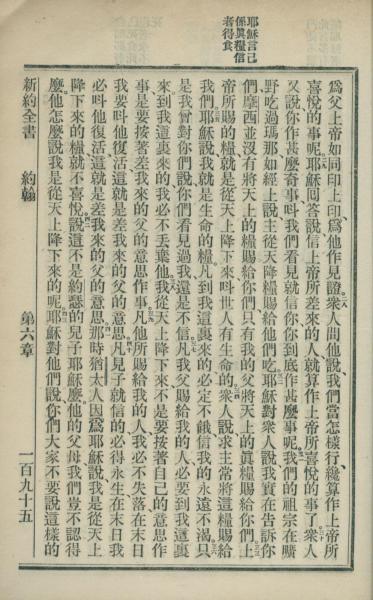 耶穌言己
係眞糧信
者得食
爲父上帝如同印上印爲他作見證衆人問他說我們當怎樣行纔算作上帝所
喜悅的事呢耶穌回答說信上帝所差來的人就算作上帝所喜悅的事了衆人
又說你作甚麽奇事呌我們看見就信你你到底作甚麽事呢我們的祖宗在曠
野吃過瑪那如經上說主從天降糧賜給他們吃耶穌對衆人說我實在告訴你
們摩西並沒有將天上的糧賜給你們只有我的父將天上的眞糧賜給你們上
帝所賜的糧就是從天上降下來呌世人有生命的衆人說求主常將這糧賜給
我們耶穌說我就是生命的糧凡到我這裏來的必定不餓信我的永遠不渴只
是我曾對你們說你們看見過我還是不信凡我父賜給我的人必要到我這裏
來到我這裏來的我必不丟棄他我從天上降下來不是要按着自己的意思作
事是要按着差我來的父的意思作事凡他所賜給我的人我必不失落在末日
我要呌他復活這就是差我來的父的意思凡見子就信的必得永生在末日我
必呌他復活這就是差我來的父的意思那時猶太人因爲耶穌說我是從天上
降下來的糧就不喜悅說這不是約瑟的兒子耶穌麽他的父母我們豈不認得
麽他怎麽說我是從天上降下來的呢耶穌對他們說你們大家不要說這樣的
新約全書　約翰　第六章　一百九十五